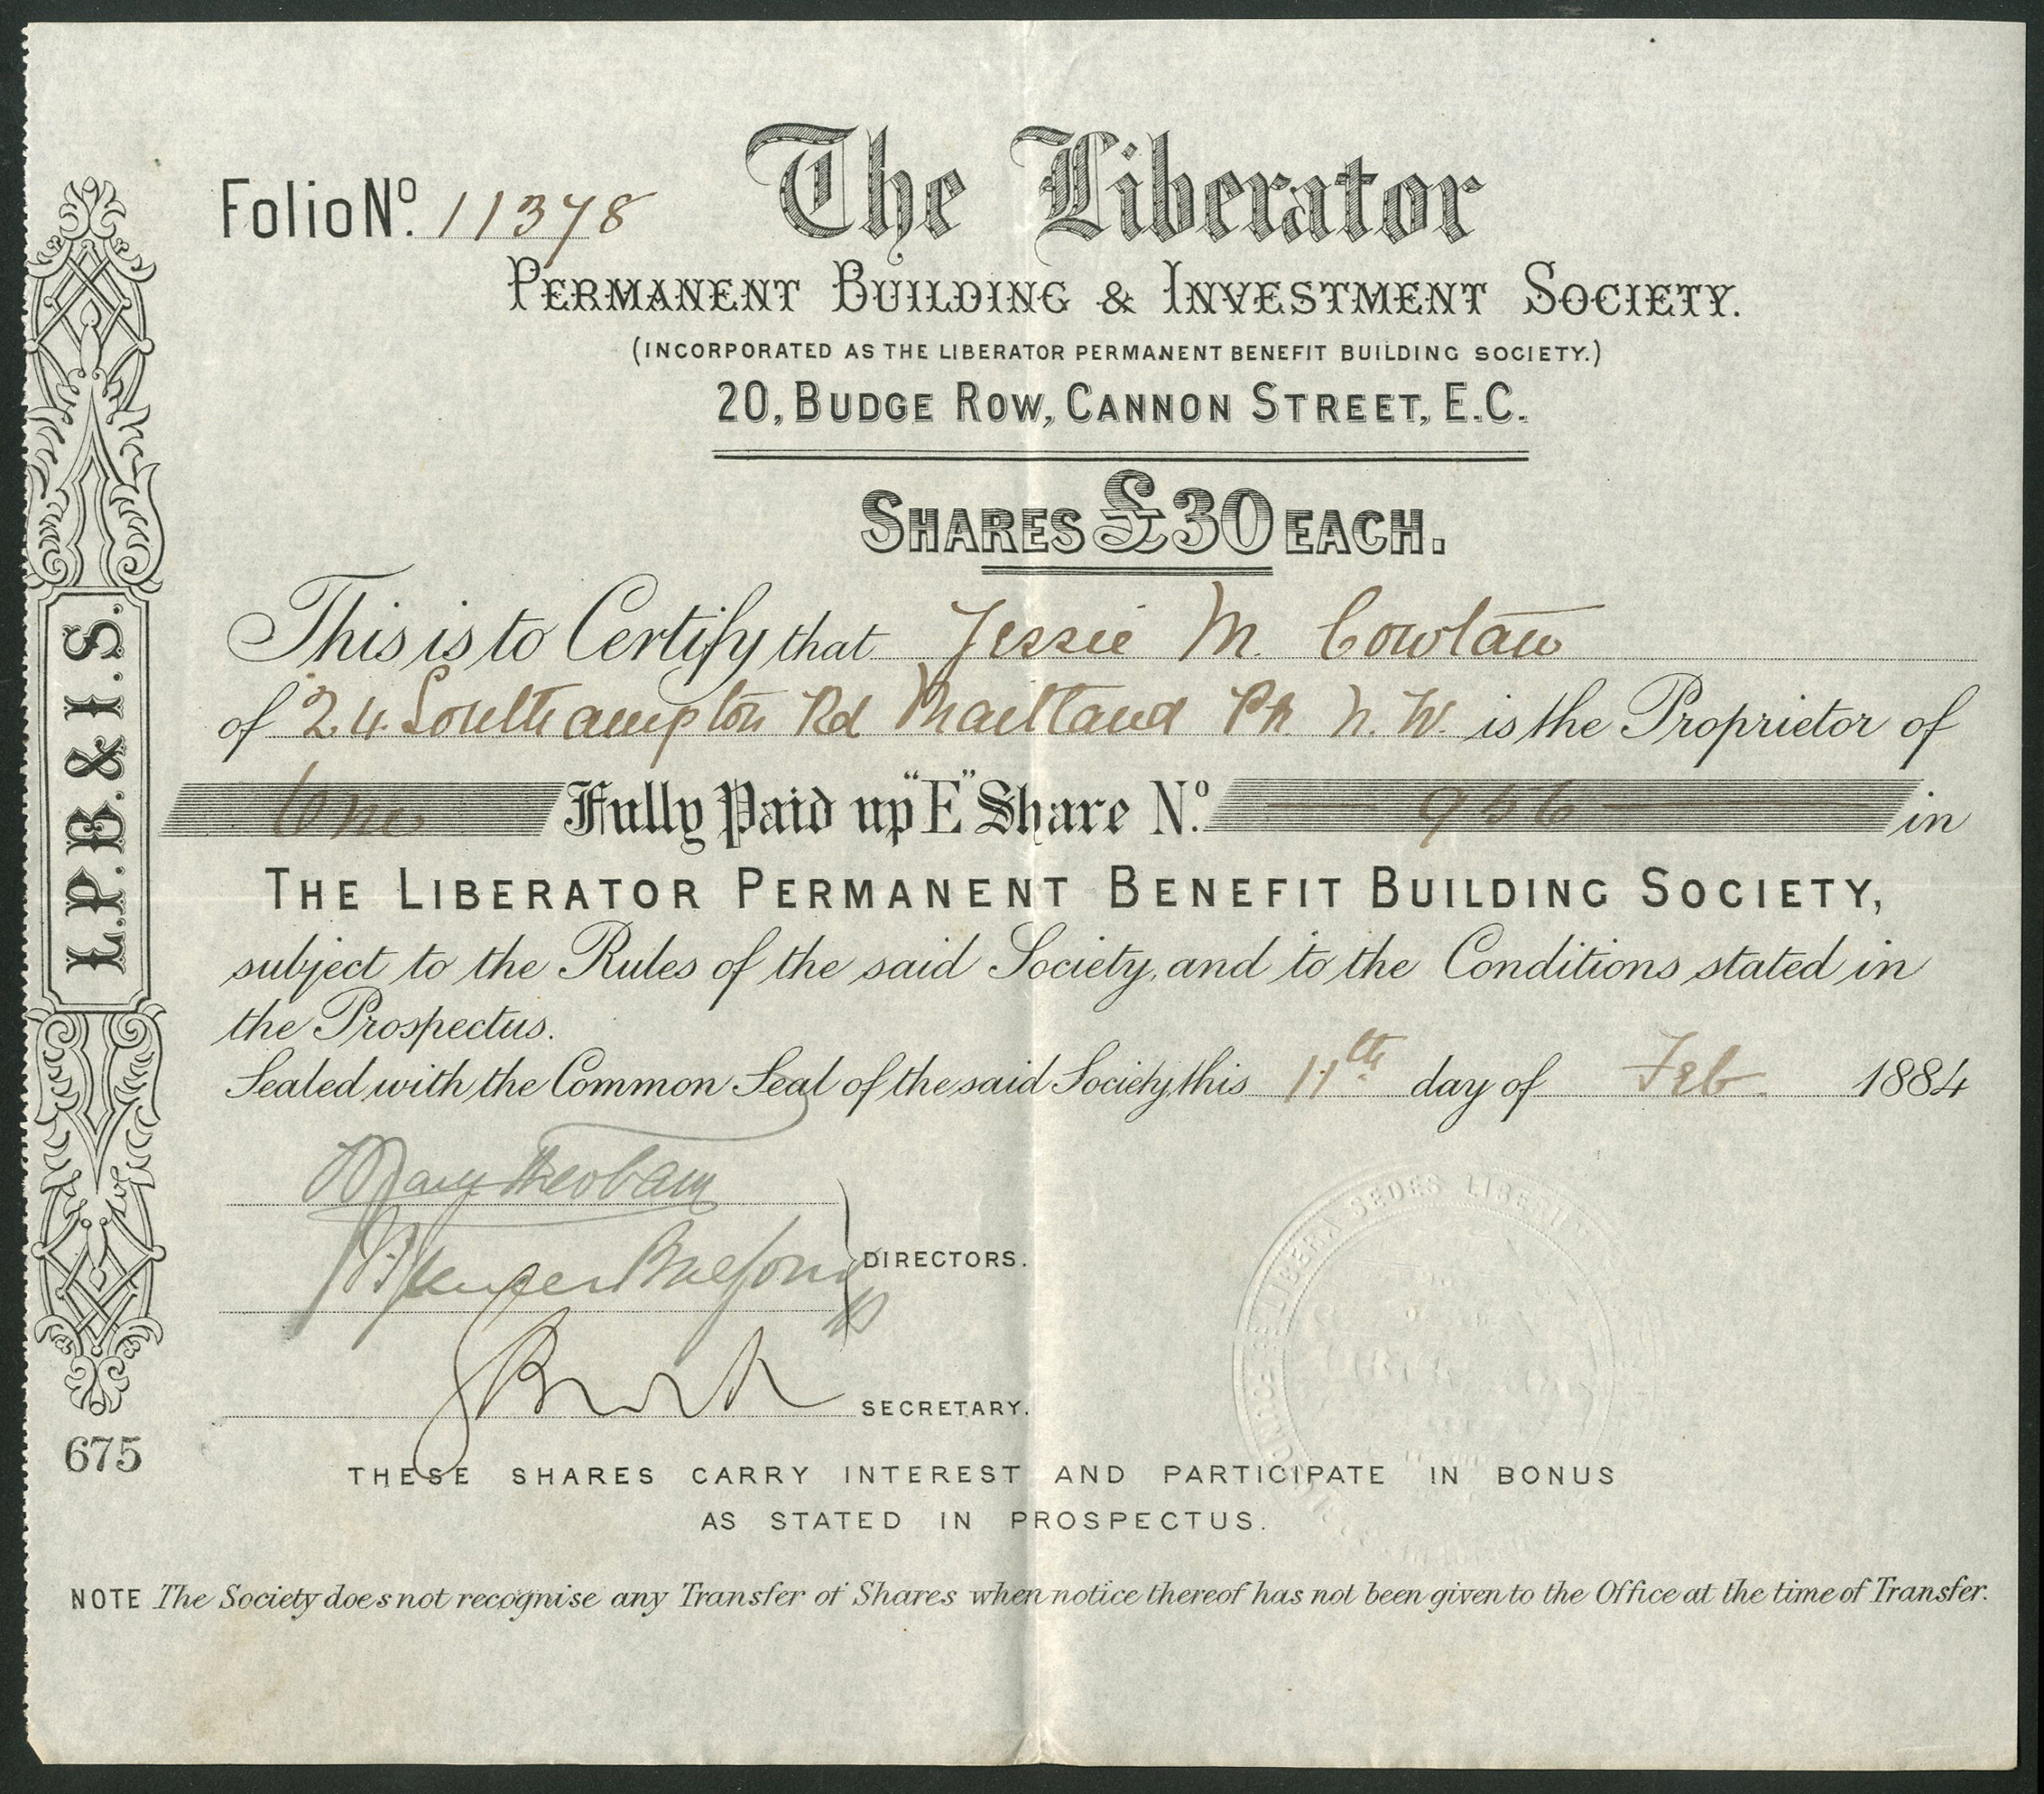 Folio No. 11378
The Liberator
PERMANENT BUILDING & INVESTMENT SOCIETY.
(INCORPORATED AS THE LIBERATOR PERMANENT BENEFIT BUILDING SOCIETY.)
20, BUDGE ROW, CANNON STREET, E.C.
SHARES £30 EACH.
This is to Certify that Jessie M.
of 24 Southampton Rd Maitland Pk N.W. is the Proprietor of
One Fully Paid up "E" Share No. 956 in
THE LIBERATOR PERMANENT BENEFIT BUILDING SOCIETY,
subject to the Rules of the said Society, and to the Conditions stated in
the Prospectus.
Sealed with the Common Seal of the said Society, this 11th day of Feb 1884
Spencer Balfour
DIRECTORS.
SECRETARY.
THESE SHARES CARRY INTEREST AND PARTICIPATE IN BONUS
AS STATED IN PROSPECTUS.
NOTE The Society does not recognise any Transfer of Shares when notice thereof has not been given to the Office at the time of Transfer.
L.P.B. & I.S.
675
LIBERA SEDES